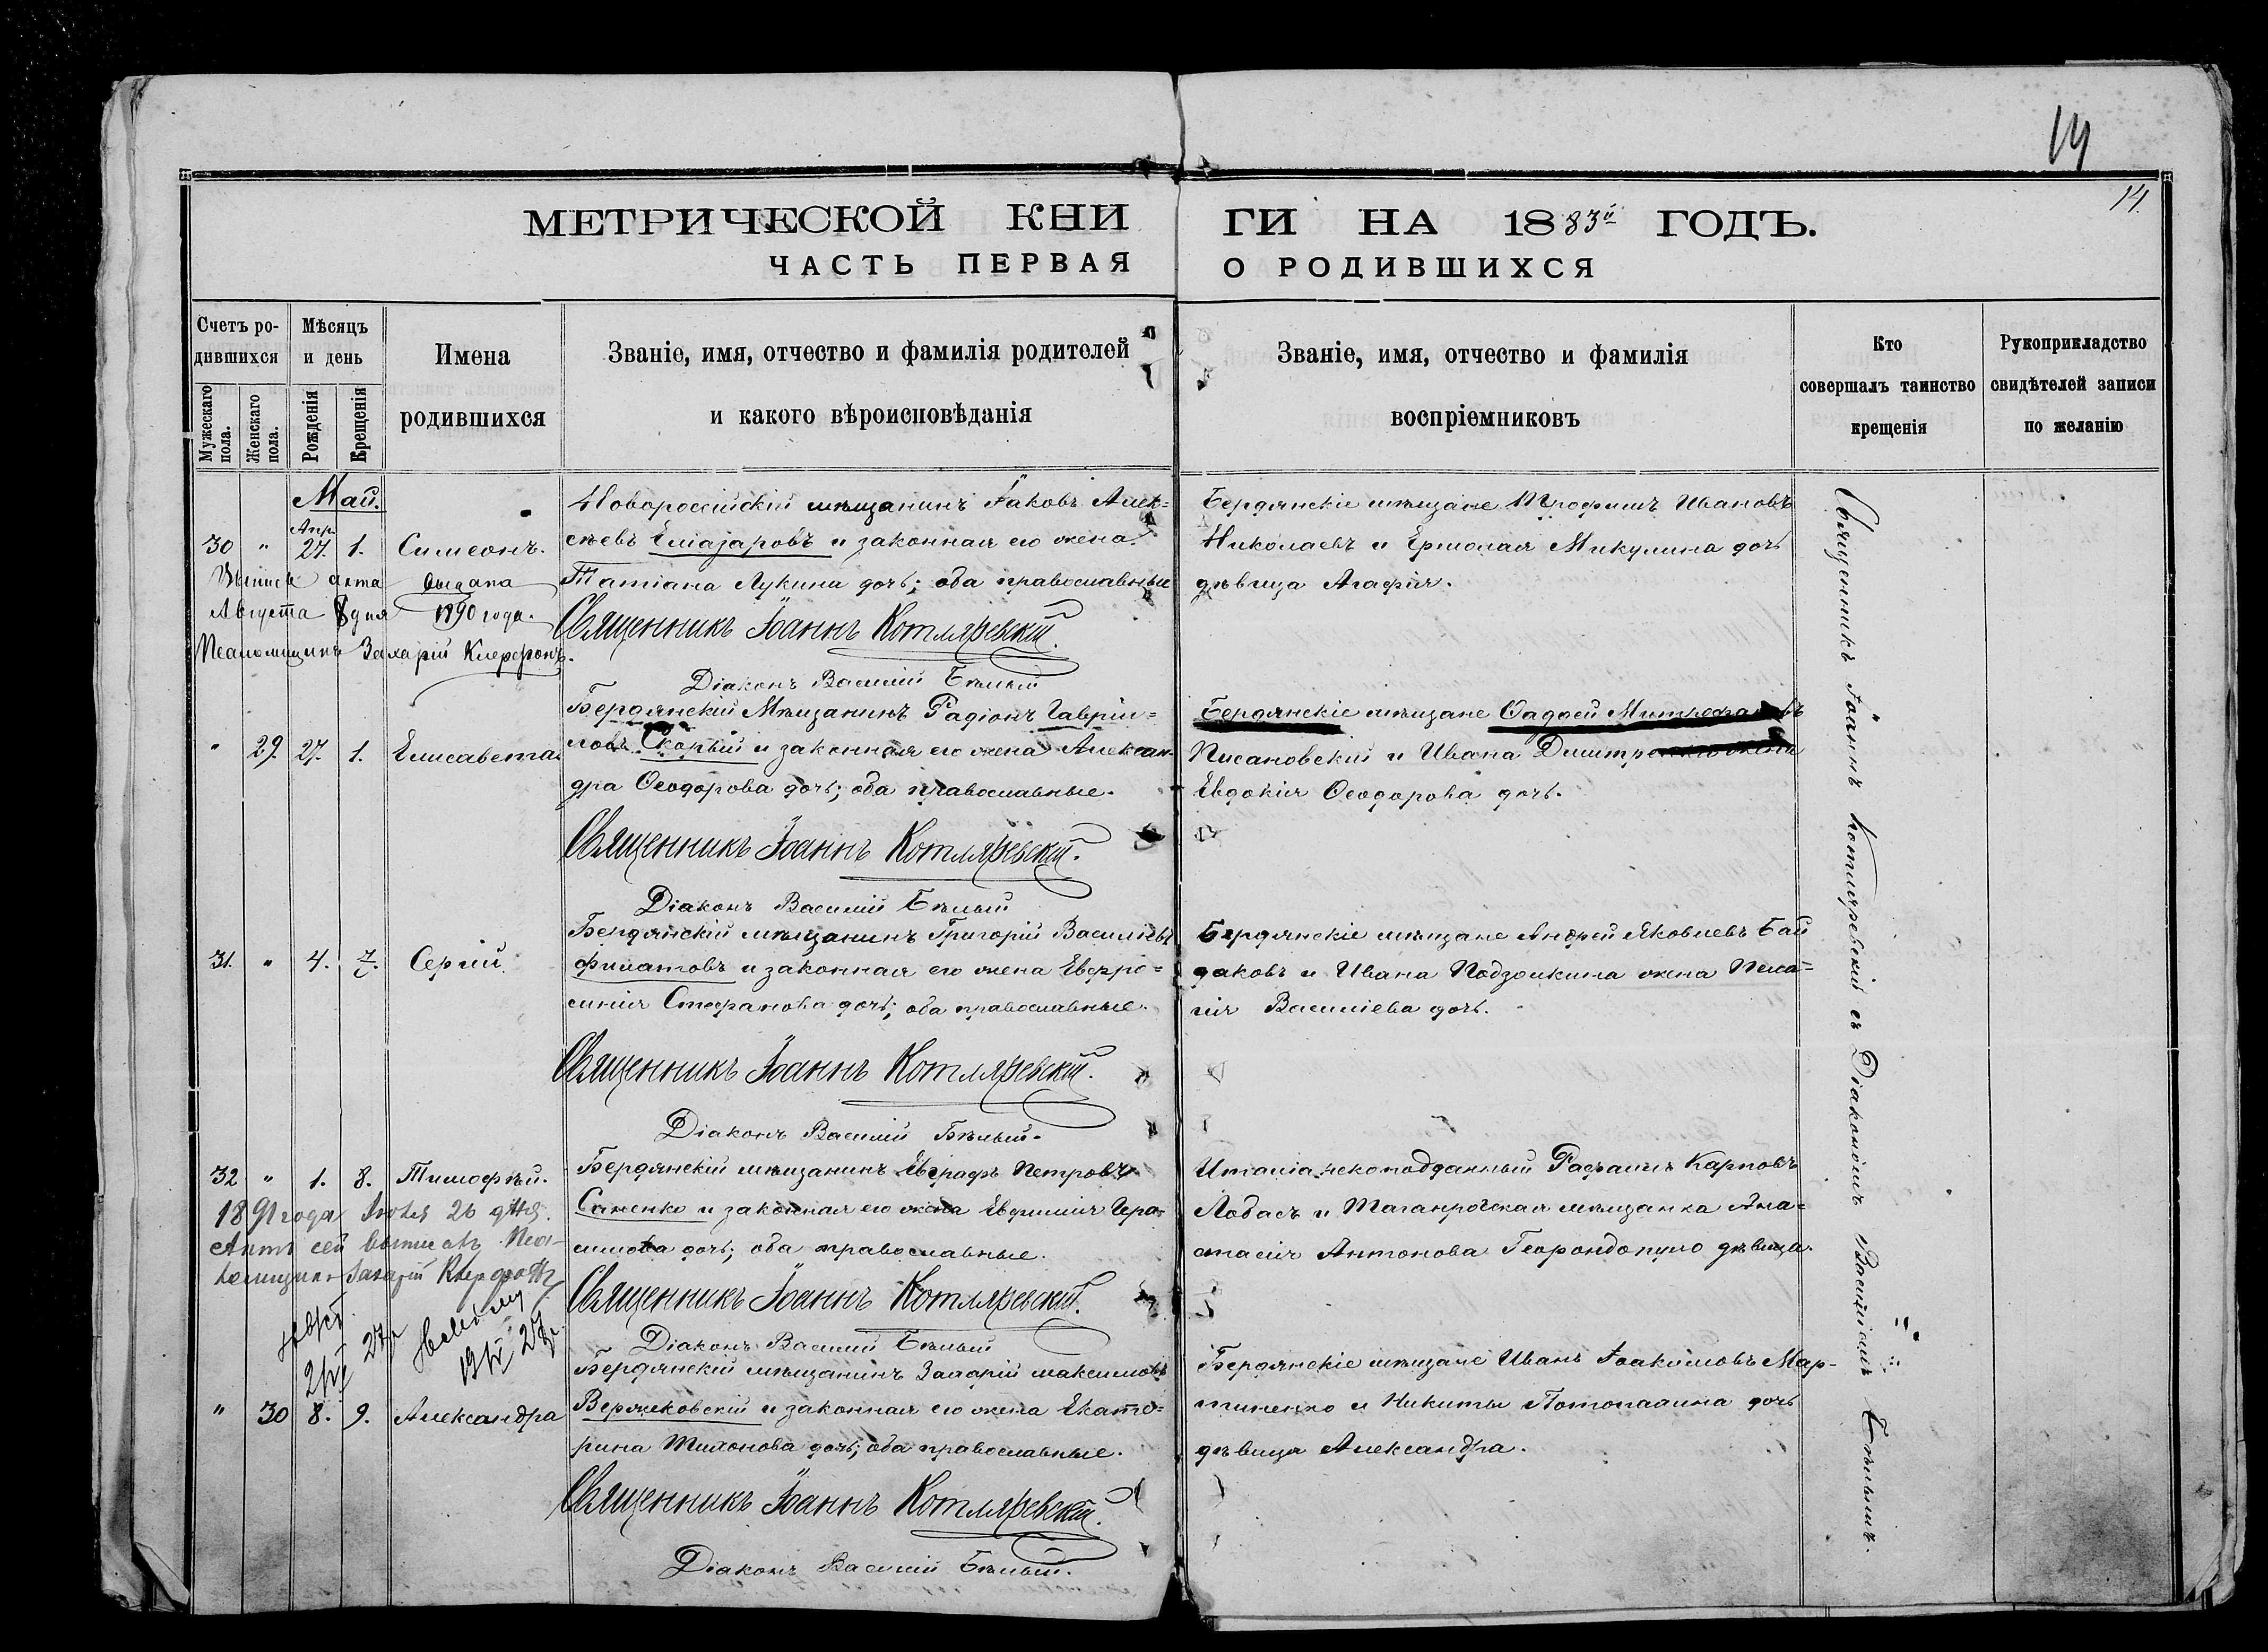 14
14.
МЕТРИЧЕСКОЙ КНИГИ НА 1883й ГОДЪ.
ЧАСТЬ ПЕРВАЯ О РОДИВШИХСЯ
Счетъ родившихся
Мужескаго пола.
Женскаго пола.
Мѣсяцъ и день
Рожденія
Крещенія
Имена
родившихся
Званіе, имя, отчество и фамилія родителей
и какого вѣроисповѣданія
Званіе, имя, отчество и фамилія
воспріемниковъ
Кто
совершалъ таинство
крещенія
Рукоприкладство
свидѣтелей записи
по желанію
Май.
Апр.
30 " 27. 1. Симеонъ.
Новороссійскій мѣщанинъ Іаковъ Алек=
сѣевъ Емазаровъ и законная его жена
Татіана Лукина дочь; оба православные
Священникъ Іоаннъ Котляревскій.
Діаконъ Василій Бѣлый
Бердянскіе мѣщане Трофимъ Ивановъ
Николаевъ и Ермолая Микулина дочь
дѣвица Агафія.
акта выдана
Августа 8 дня 1890 года.
Псаломщикъ Захарій
" 29. 27. 1. Елисавета.
Бердянскій Мѣщанинъ Радіонъ Гаврiи=
ловъ Скорый и законная его жена Алексан-
дра Ѳеодорова дочь; оба православные.
Священникъ Іоаннъ Котляревскій.
Діаконъ Василій Бѣлый
Бердянскіе мѣщане Ѳаддей Митрофановъ
Писановский и Ивана жена
Евдокія Ѳеодорова дочь.
31. " 4. 7. Сергій.
Бердянскій мѣщанинъ Григорій Васильевъ
Филатовъ и законная его жена Евфро=
синія Стефанова дочь; оба православные.
Священникъ Іоаннъ Котляревскій.
Діаконъ Василій Бѣлый.
Бердянскіе мѣщане Андрей Яковлевъ Бай
даковъ и Ивана Подзолкина жена Пела=
гія Василіева дочь.
32 " 1. 8. Тимофѣй.
Бердянскій мѣщанинъ Евграфъ Петровъ
Саненко и законная его жена Евфимія Гера=
симова дочь; оба православные.
Священникъ Іоаннъ Котляревскій.
Діаконъ Василій Бѣлый
Италіанскоподданный Рафаилъ Карповъ
Лобасъ и Таганрогская мѣщанка Ана=
стасія Антонова Георондопуло дѣвица.
1891 года Іюля 26 дня.
Актъ сей выписалъ Пса-
ломщикъ Захарій
" 30 8. 9. Александра
Бердянскій мѣщанинъ Захарій Максимовъ
Вержековскій и законная его жена Екате=
рина Тихонова дочь; оба православные.
Священникъ Іоаннъ Котляревскій.
Діаконъ Василій Бѣлый.
Бердянскіе мѣщане Иванъ Іоакимовъ Мар-
тиненко и Никиты Потопахина дочь
дѣвица Александра.
Священникъ Іоаннъ Котляревскій съ Діакономъ Василіемъ Бѣлымъ.